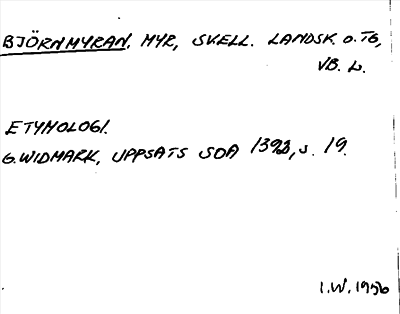 BJÖRNMYRAN, MYR, SKELL. LANDSK. O. TG,
VB. L.
ETYMOLOGI.
G. WIDMARK, UPPSATS SOA 1392, S. 19.
I.W. 1956